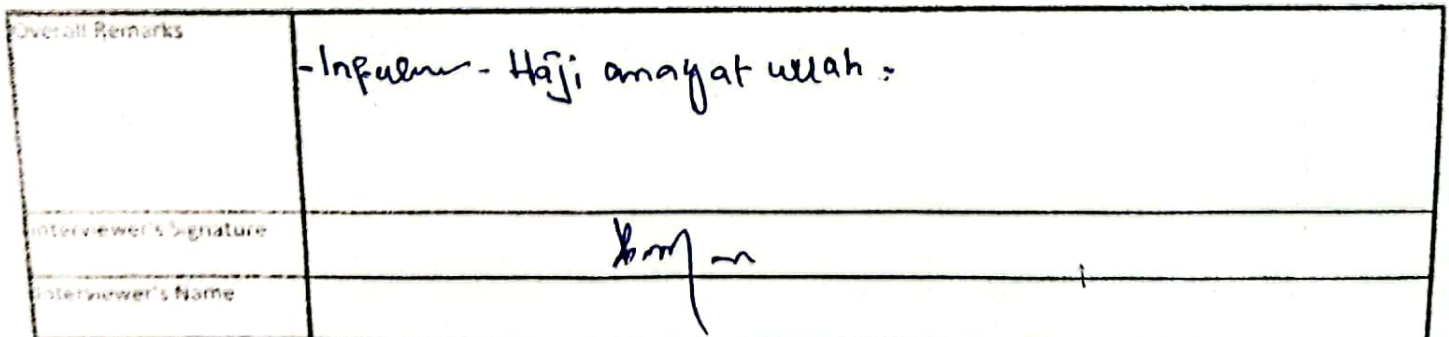 Overall Remarks
- Haji anayat ullah.
Interviewer's Signature
Interviewer's Name